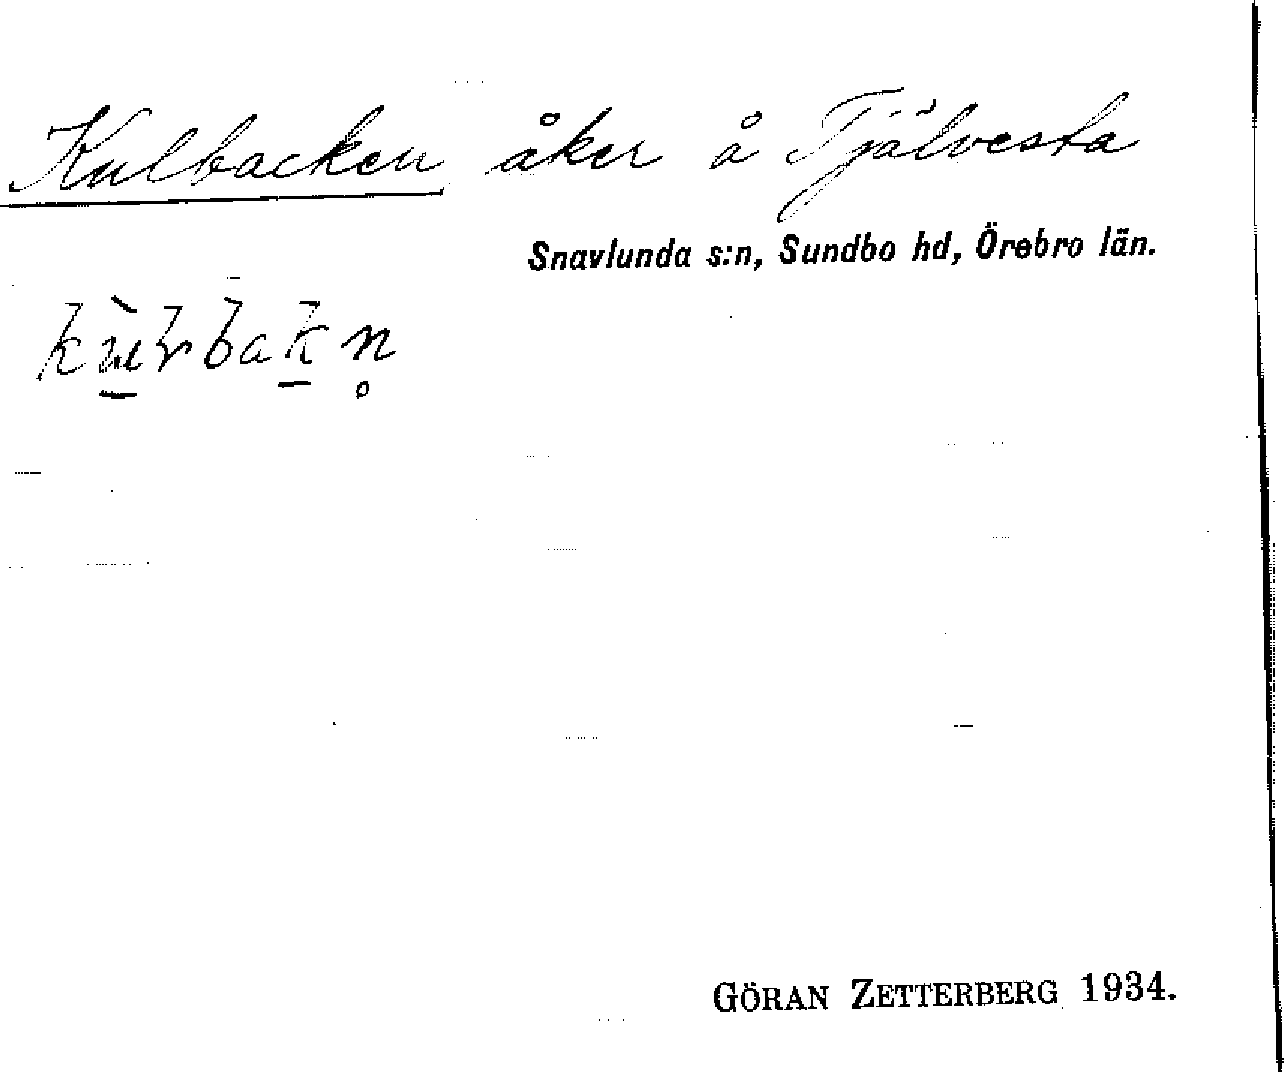 Kulbacken åker å Tjälvesta
Snavlunda s:n, Sundbo hd, Örebro län.
GÖRAN ZETTERBERG 1934.